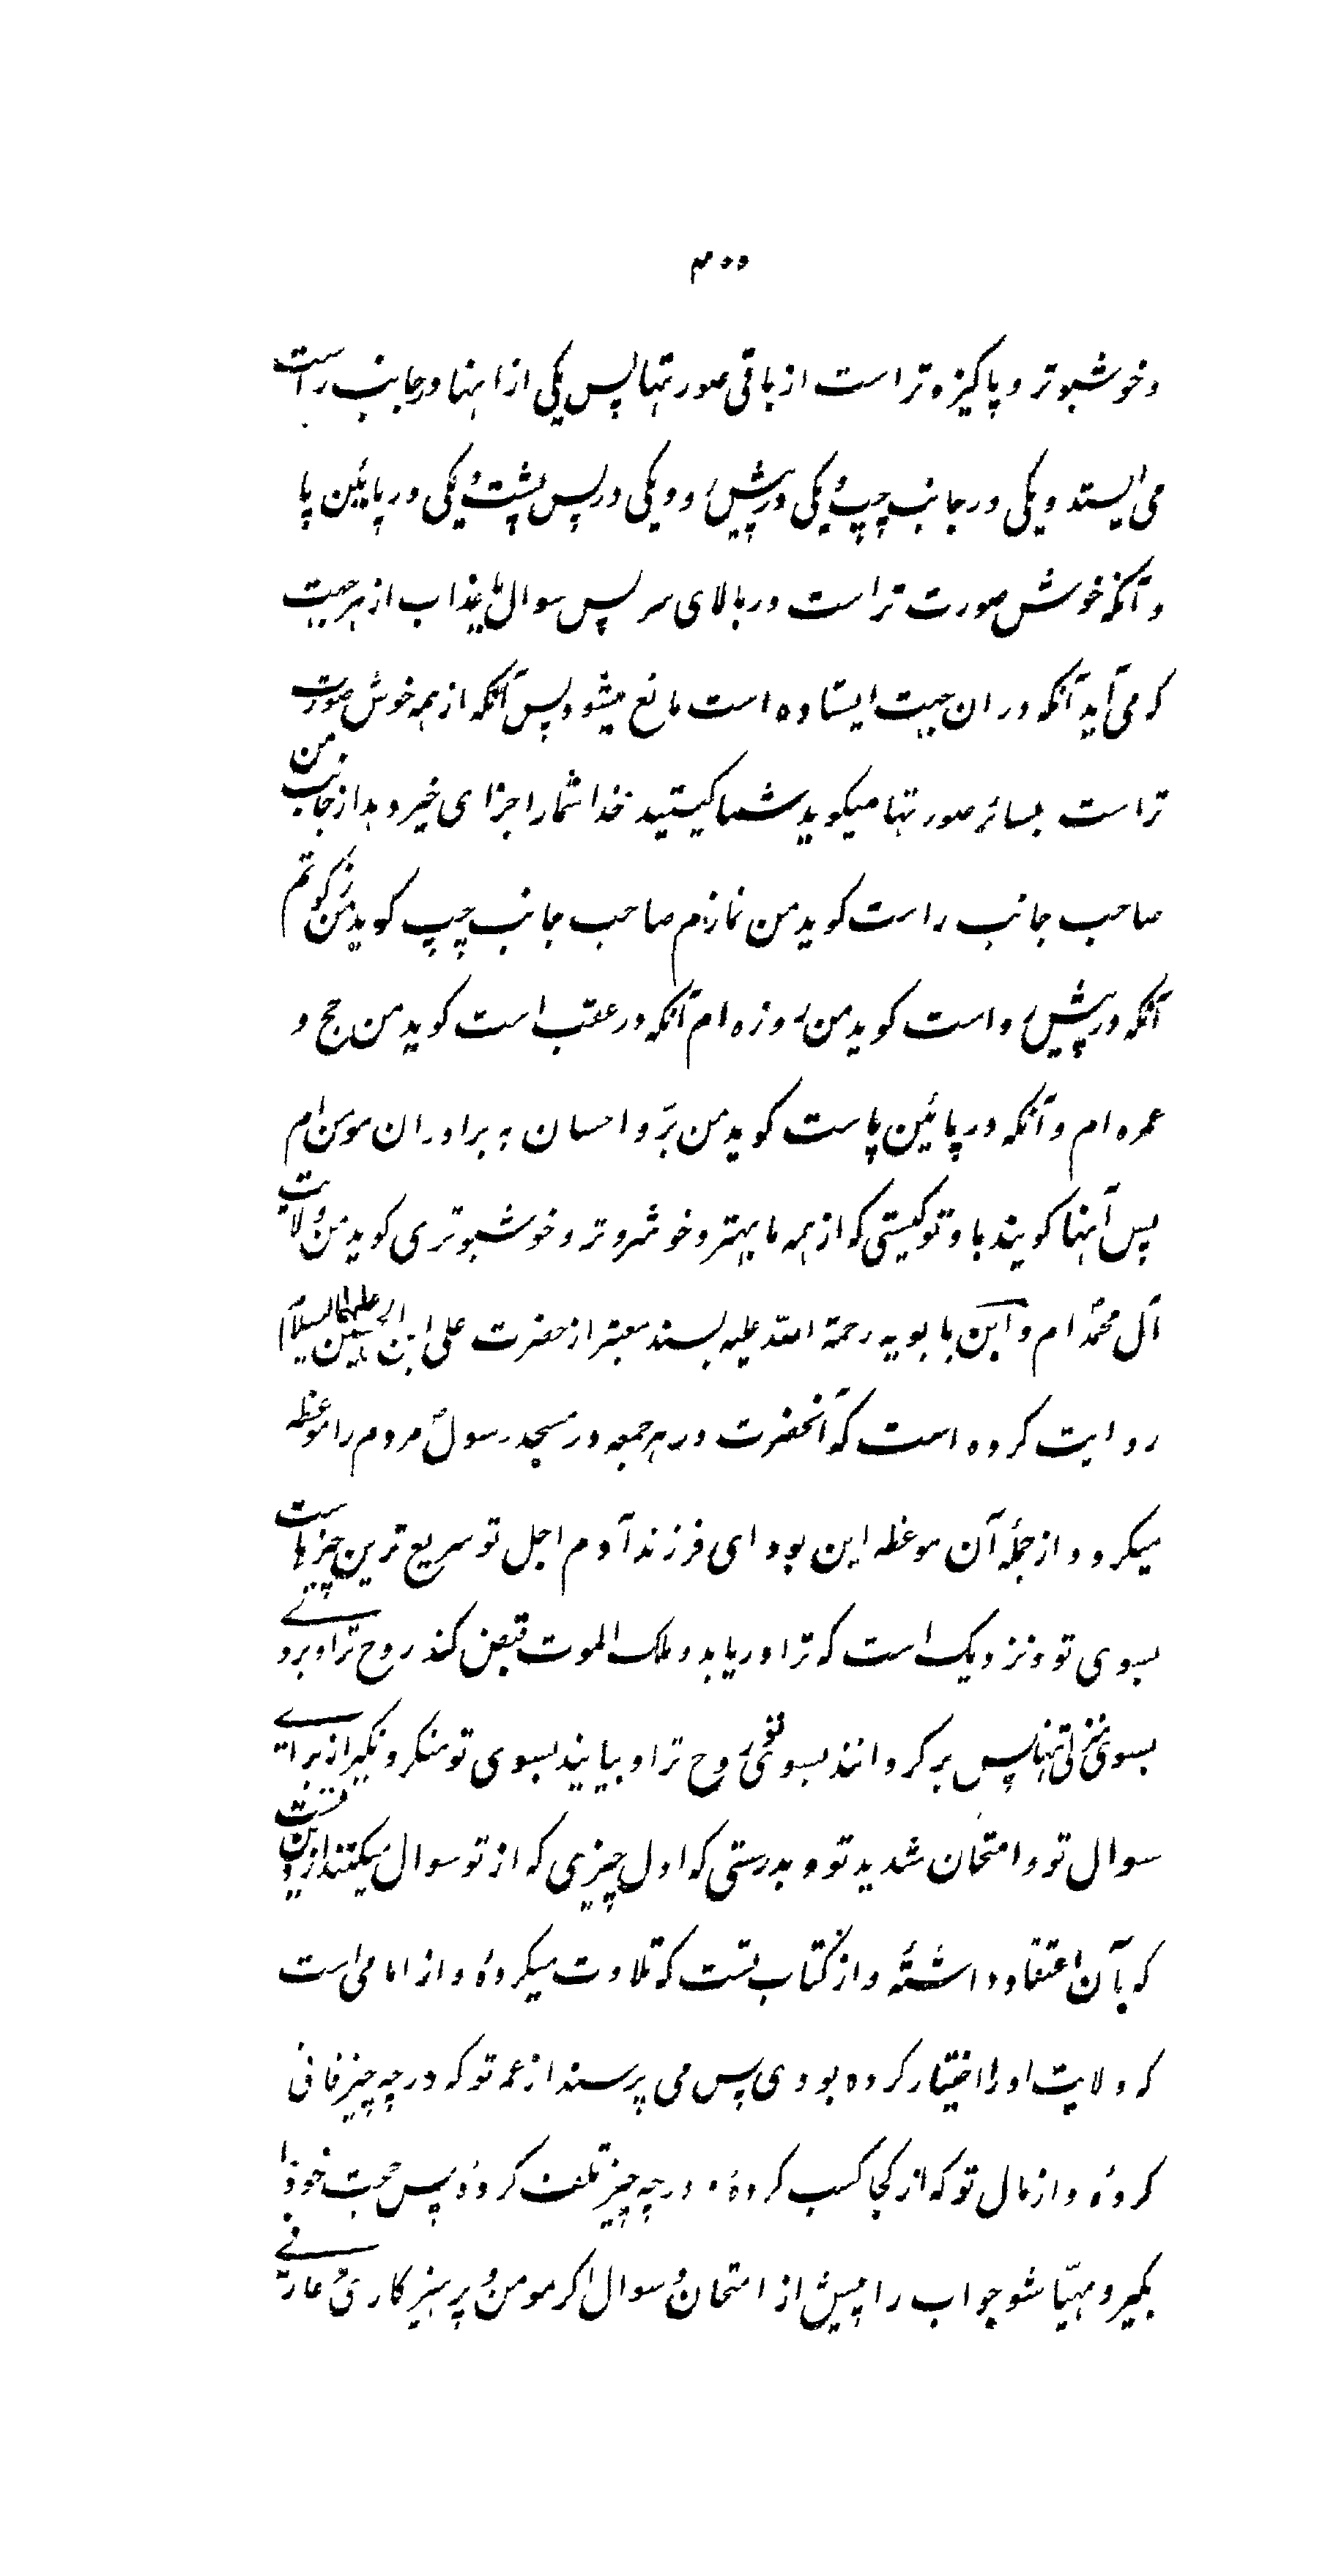 ۴۰۰
وخوشبوتر و پاکیزه تر است از باقی صورتها پس یکی از انها در جانب راست
می ایستد و یکی در جانب چپ و یکی در پیش رو و یکی در پس پشت و یکی در پائین پا
و آنکه خوش صورت تر است در بالای سر پس سوال یا عذاب از هر جهت
که می آید آنکه در ان جهت ایستاده است مانع میشود پس آنکه از همه خوش صورت
تر است بسائر صورتها میکوید شما کیستید خدا شما را جزای خیر دهد از جانب من
صاحب جانب راست کوید من نمازم صاحب جانب چپ کوید من زکوتم
آنکه در پیش رو است کوید من روزه ام آنکه در عقب است کوید من حج و
عمره ام و آنکه در پائین پاست کوید من برّ و احسان به برادران مومن ام
پس آنها کویند باو تو کیستی که از همه ما بهتر و خوشروتر و خوشبوتری کوید من ولایت
آل محمّد ام و ابن بابویه رحمة الله علیه بسند معتبر از حضرت علی ابن الحسین علیهما السلام
روایت کرده است که آنحضرت در هر جمعه در مسجد رسولؐ مردم را موعظه
میکرد و از جملهٔ آن موعظه این بود ای فرزند آدم اجل تو سریع ترین چیزهاست
بسوی تو و نزدیک است که ترا دریابد و ملک الموت قبض کند روح ترا و بروی
بسوی منزل تنها پس بر کردانند بسوی تو روح ترا و بیایند بسوی تو منکر و نکیر از برای
سوال تو و امتحان شدید تو و بدرستی که اول چیزی که از تو سوال میکنند از دین تست
که بآن اعتقاد داشتهٔ و از کتاب تست که تلاوت میکردهٔ و از امامی است
که ولایت او را اختیار کرده بودی پس می پرسند از عمر تو که در چه چیز فانی
کردهٔ و از مال تو که از کجا کسب کردهٔ و در چه چیز تلف کردهٔ پس حجت خود را
بکیر و مهیّا شو جواب را پیش از امتحان و سوال اکر مومن و پرهیزکاری و عارفی